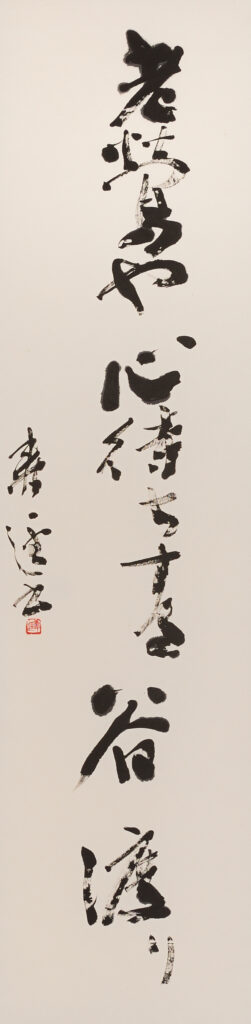 老鶯や心待ちする谷渡り